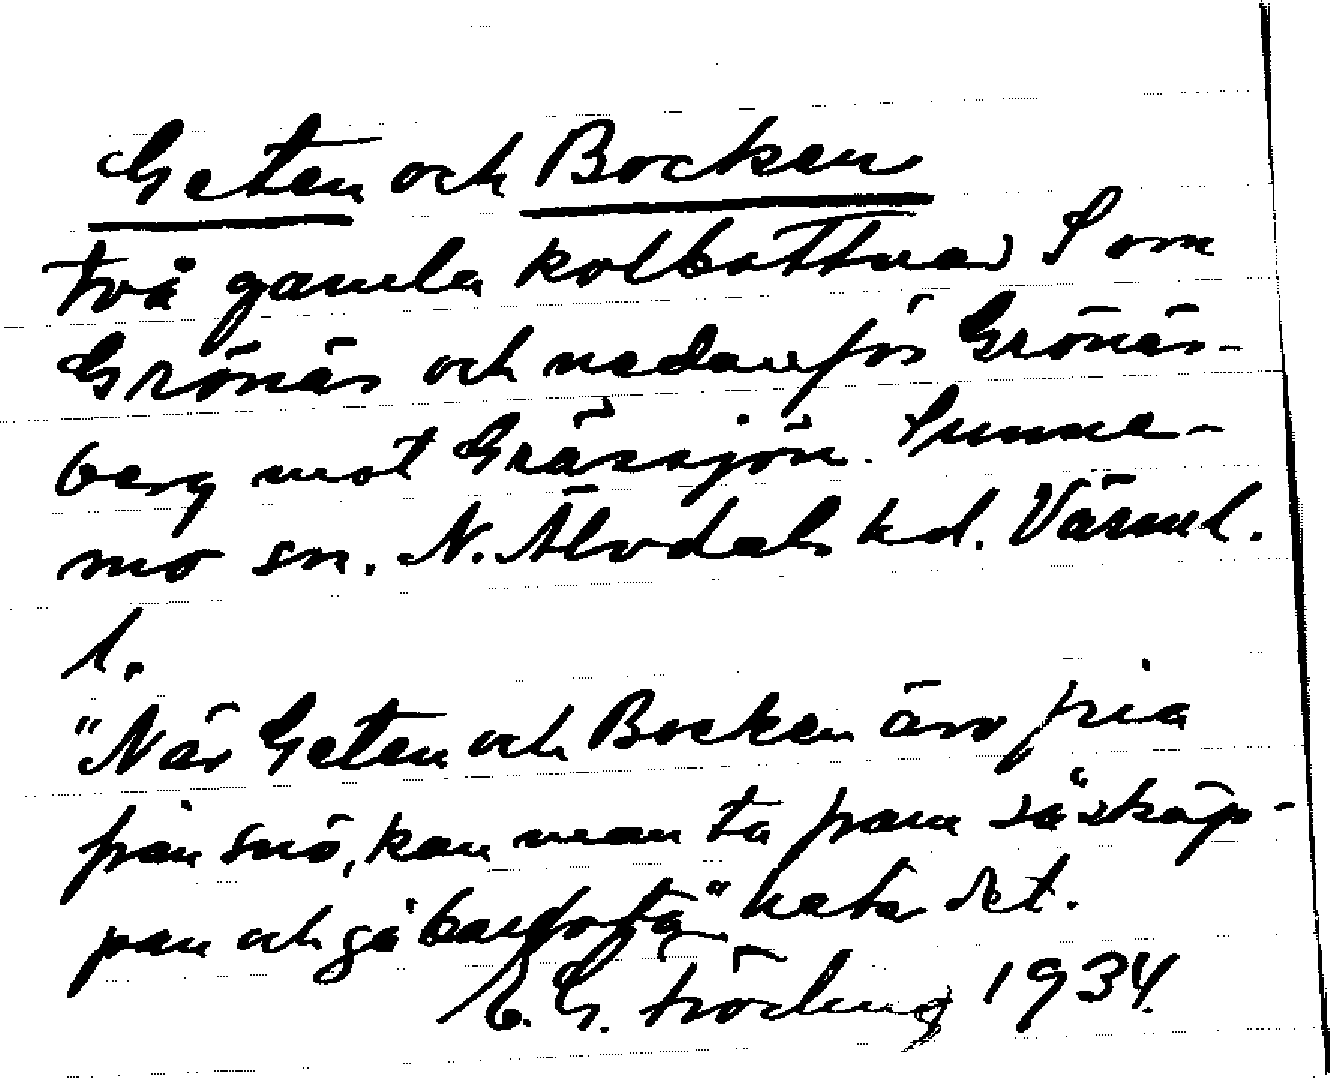 Geten och Bocken
två gamla kolbottnar S om
Grönäs och nedanför Grönäs-
berg mot Grässjön. Sunne-
mo sn. N. Älvdals hd. Värml.
l.
"När Geten och Bocken äro fria
från snö, kan man ta fram såskäp-
pan och gå barfota" heter det.
E. G. Fröding 1934.